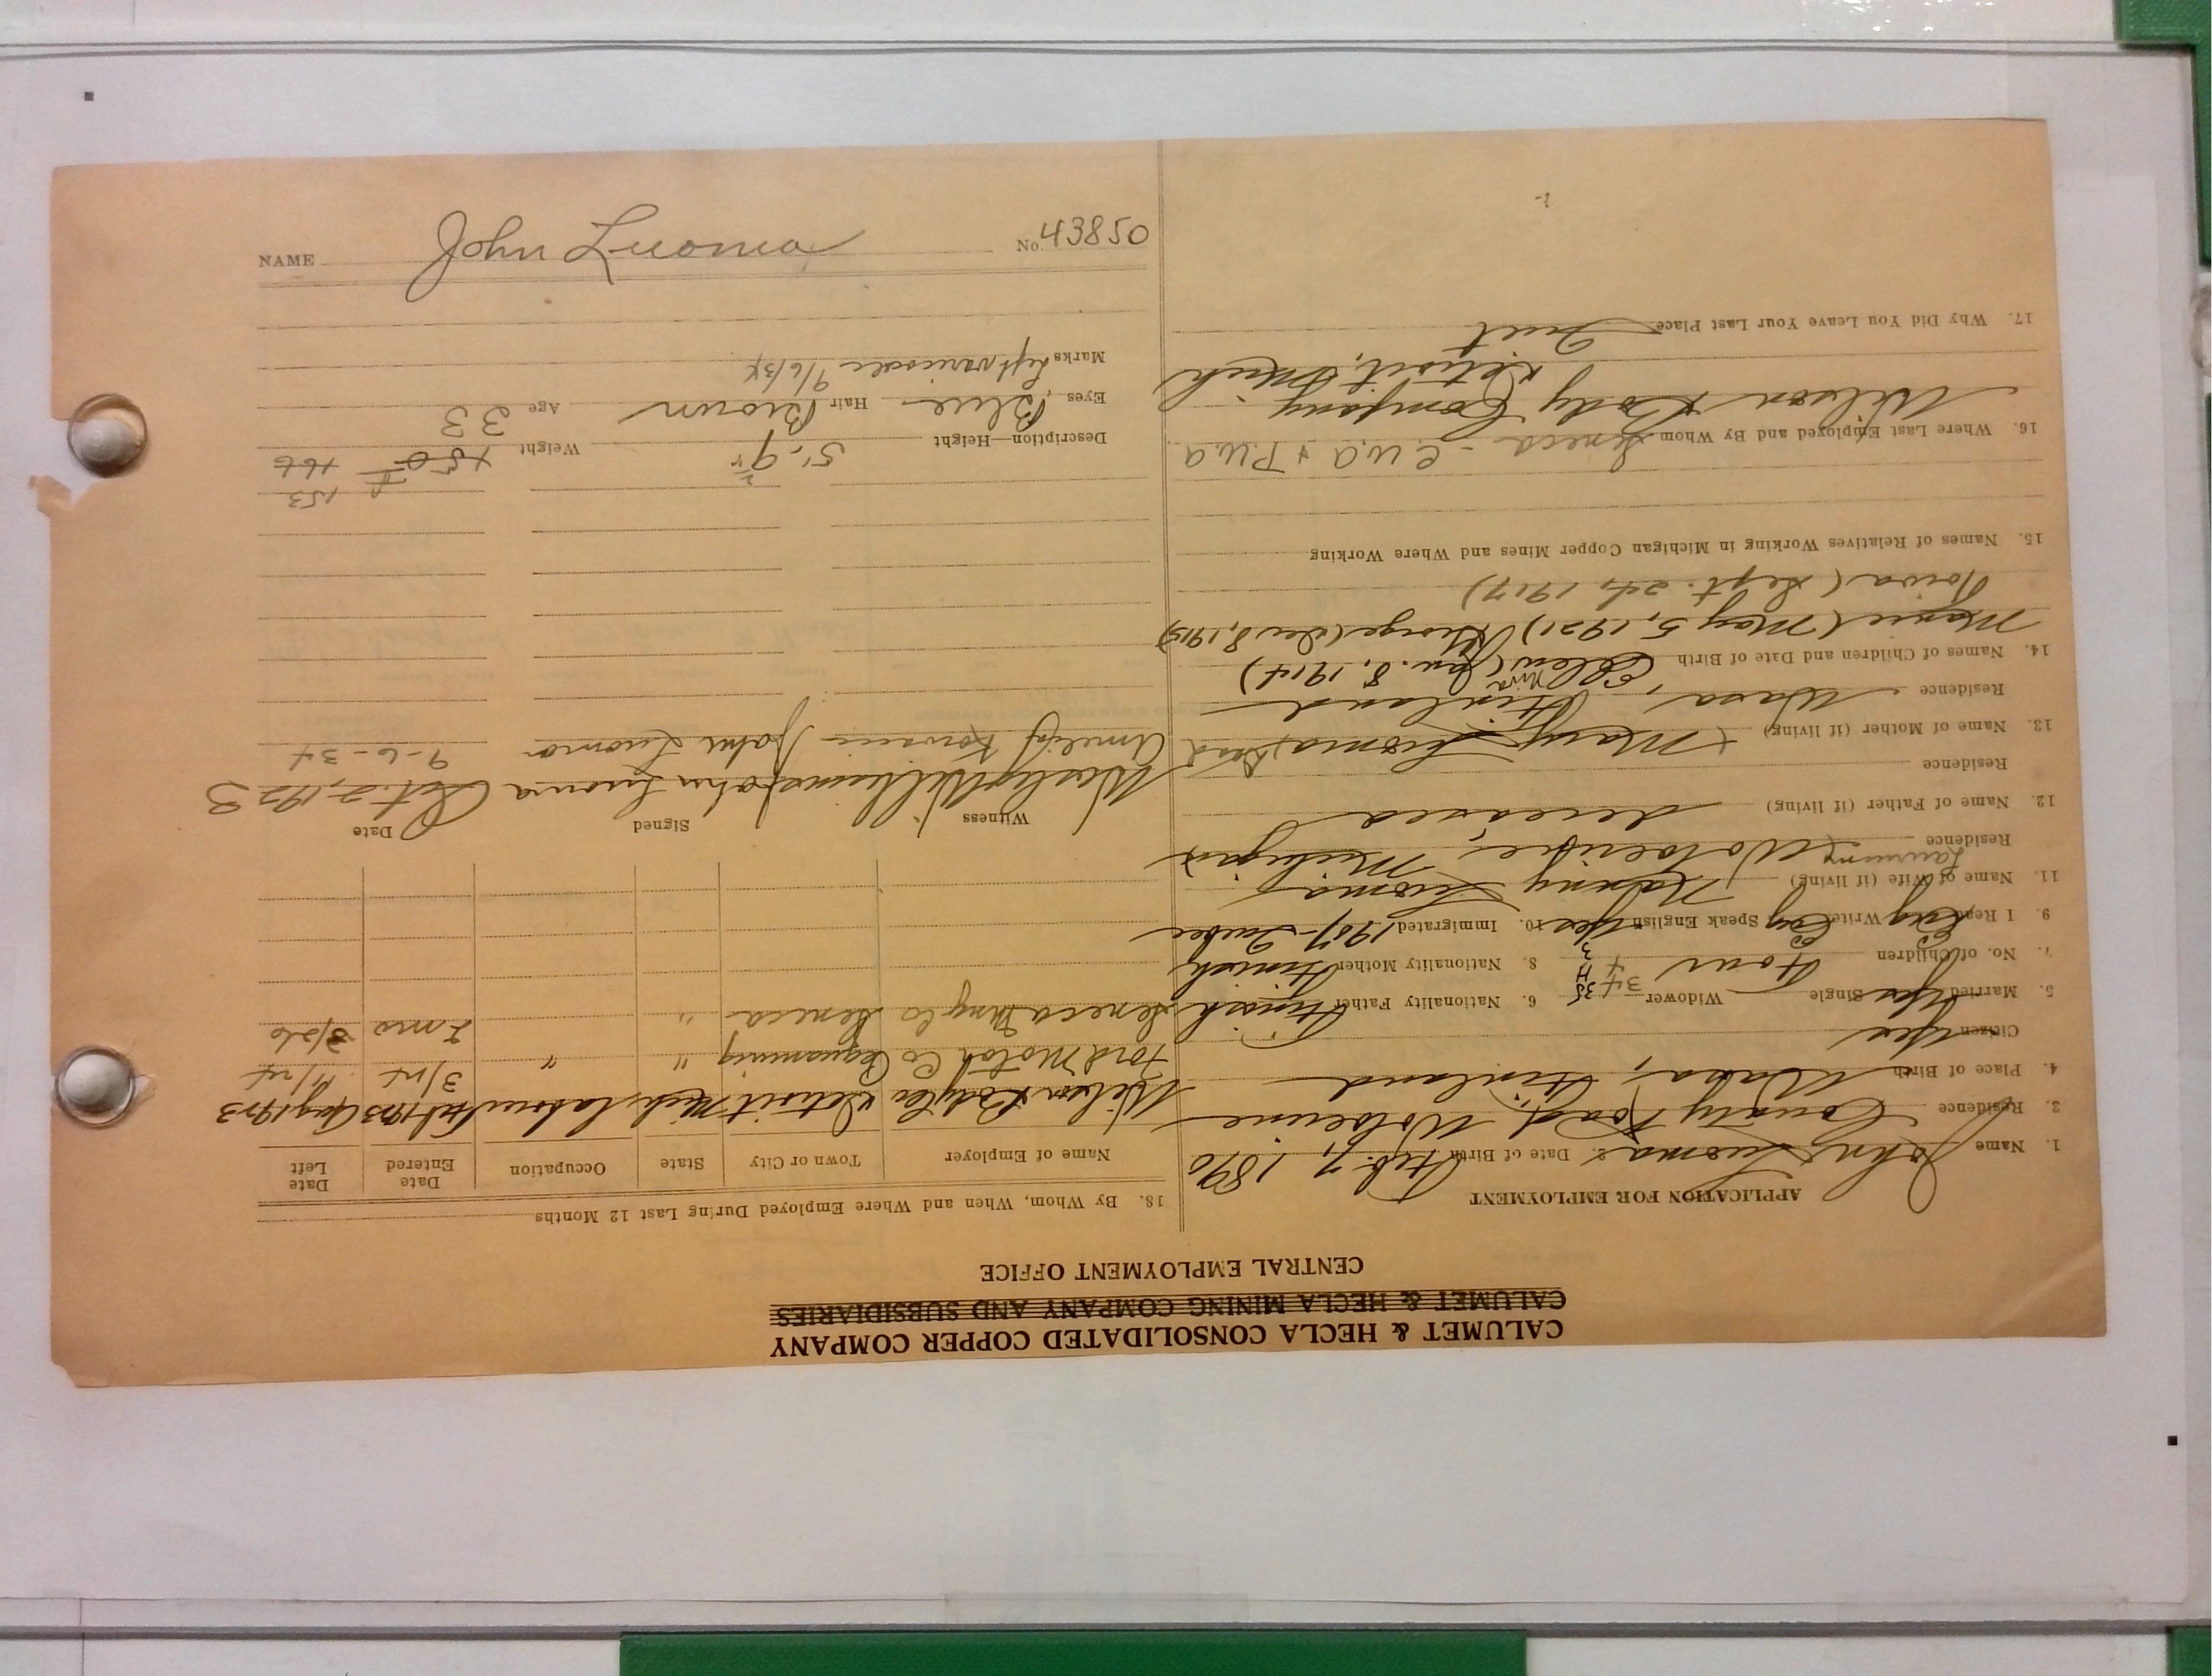 CALUMET & HECLA CONSOLIDATED COPPER COMPANY
CALUMET & HECLA MINING COMPANY AND SUBSIDIARIES
CENTRAL EMPLOYMENT OFFICE
APPLICATION FOR EMPLOYMENT
1. Name John Luoma 2. Date of Birth Feb. 7, 1890
3. Residence County Road, Wolverine
4. Place of Birth Wasa, Finland
Citizen Yes
5. Married Yes Single Widower 34 35 6. Nationality Father Finnish
7. No. of Children Four 4 3 8. Nationality Mother Finnish
9. I Read Eng Write Eng Speak English Yes 10. Immigrated 1907 - Quebec
11. Name of Wife (if living) Fanny Luoma
Residence Laurium Wolverine, Michigan
12. Name of Father (if living) deceased
Residence
13. Name of Mother (if living) (Mary Luoma) Dead
Residence Wasa, Finland
14. Names of Children and Date of Birth Ellen (Jan. 8, 1914)
Mayme (May 5, 1921) George (Dec 8, 1915)
Toivo (Sept. 24, 1917)
15. Names of Relatives Working in Michigan Copper Mines and Where Working
16. Where Last Employed and By Whom Seneca - C.W.A + P.W.A
Wilson Body Company
Detroit, Mich
17. Why Did You Leave Your Last Place Quit
18. By Whom, When and Where Employed During Last 12 Months
Name of Employer Town or City State Occupation Date Entered Date Left
Wilson Body Co Detroit Mich laborer Feb 1923 Aug 1923
Ford Motor Co Pequaming " " 3/24 4/24
Seneca Mng Co Seneca " 2 mo 3/26
Witness Signed Date
Wesley Williams John Luoma Oct. 2, 1923
John Luoma 9-6-34
153
Description—Height 5'-9 1/2" Weight 150 166
Eyes Blue Hair Brown Age 33
Marks Left varicocele 9/6/34
NAME John Luoma No. 43850